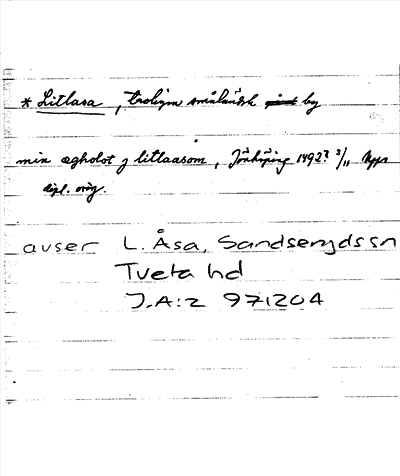 * Litlasa, troligen småländsk by
min ægholot j litlaasom, Jönköping 1492? 3/11 Upps
dipl. orig.
avser L. Åsa, Sandseryds sn
Tveta hd
J.A:z 971204